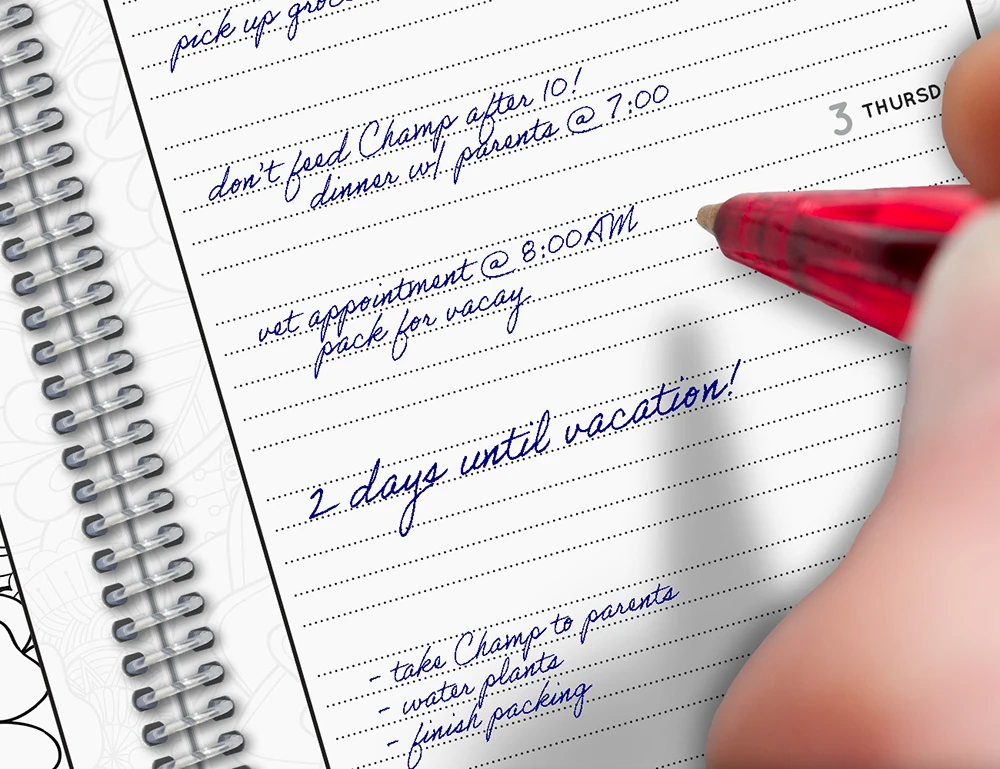 pick up
don't feed Champ after 10!
dinner w/ parents @ 7:00
3 THURSD
vet appointment @ 8:00AM
pack for vacay
2 days until vacation!
- take Champ to parents
- water plants
- finish packing